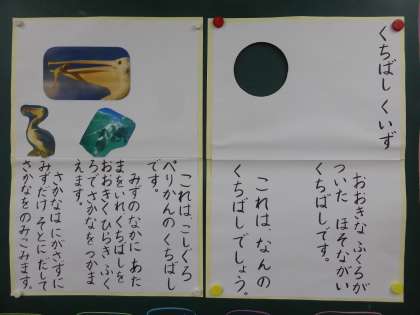 くちばし くいず
おおきな ふくろが
ついた ほそながい
くちばしです。
これは、なんの
くちばしでしょう。
これは、こしぐろ
ぺりかんの くちばし
です。
みずの なかに あた
まをいれ くちばしを
おおきくひらき ふく
ろで さかなを つかま
えます。
さかなは にがさずに
みずだけ そとに だして
さかなを のみこみます。